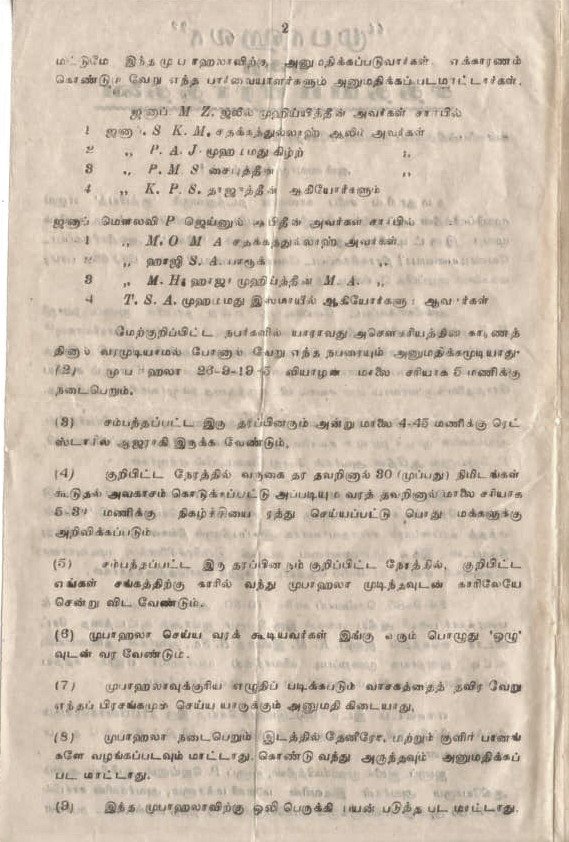 2
மட்டுமே இந்த முபாஹலாவிற்கு அனுமதிக்கப்படுவார்கள். எக்காரணம்
கொண்டும் வேறு எந்த பார்வையாளர்களும் அனுமதிக்கப் படமாட்டார்கள்.
ஜனாப் M Z. ஜலீல் முஹிய்யித்தீன் அவர்கள் சார்பில்
1 ஜனா . S K M. சதக்கத்துல்லாஹ் ஆலிம் அவர்கள் ..
2 ,, P. A. J. முஹம்மது கிழ்ற் ,,
3 ,, P. M. S சைபுத்தீன் ,,
4 ,, K. P. S. தாஜுத்தீன் ஆகியோர்களும்
ஜனாப் மௌலவி P ஜெய்னுல் ஆபிதீன் அவர்கள் சார்பில்
1 ,, M. O. M A சதக்கத்துல்லாஹ் அவர்கள்
2 ,, ஹாஜி S. A. பாரூக் ,,
3 ,, M. H. ஹாஜா முஹிய்த்தீன் M. A. ,,
4 T. S. A. முஹம்மது இஸ்மாயில் ஆகியோர்களும் ஆவார்கள்
மேற்குறிப்பிட்ட நபர்களில் யாராவது அசௌகரியத்தின் காரணத்
தினால் வரமுடியாமல் போனால் வேறு எந்த நபரையும் அனுமதிக்கமுடியாது.
(2) முபாஹலா 26-9-19 5 வியாழன் மாலை சரியாக 5 மணிக்கு
நடைபெறும்.
(3) சம்பந்தப்பட்ட இரு தரப்பினரும் அன்று மாலை 4-45 மணிக்கு ரெட்
ஸ்டாரில் ஆஜராகி இருக்க வேண்டும்.
(4) குறிபிட்ட நேரத்தில் வருகை தர தவறினால் 30 (முப்பது) நிமிடங்கள்
கூடுதல் அவகாசம் கொடுக்கப்பட்டு அப்படியும் வரத் தவறினால் மாலை சரியாக
5-30 மணிக்கு நிகழ்ச்சியை ரத்து செய்யப்பட்டு பொது மக்களுக்கு
அறிவிக்கப்படும்
(5) சம்பந்தப்பட்ட இரு தரப்பினரும் குறிப்பிட்ட நேரத்தில், குறிபிட்ட
எங்கள் சங்கத்திற்கு காரில் வந்து முபாஹலா முடிந்தவுடன் காரிலேயே
சென்று விட வேண்டும்.
(6) முபாஹலா செய்ய வரக் கூடியவர்கள் இங்கு வரும் பொழுது 'ஒழு'
வுடன் வர வேண்டும்.
(7) முபாஹலாவுக்குரிய எழுதிப் படிக்கபடும் வாசகத்தைத் தவிர வேறு
எந்தப் பிரசங்கமும் செய்ய யாருக்கும் அனுமதி கிடையாது.
(8) முபாஹலா நடைபெறும் இடத்தில் தேனீரோ, மற்றும் குளிர் பானங்
களே வழங்கப்படவும் மாட்டாது. கொண்டு வந்து அருந்தவும் அனுமதிக்கப்
பட மாட்டாது.
(9) இந்த முபாஹலாவிற்கு ஒலி பெருக்கி பயன் படுத்த பட மாட்டாது.